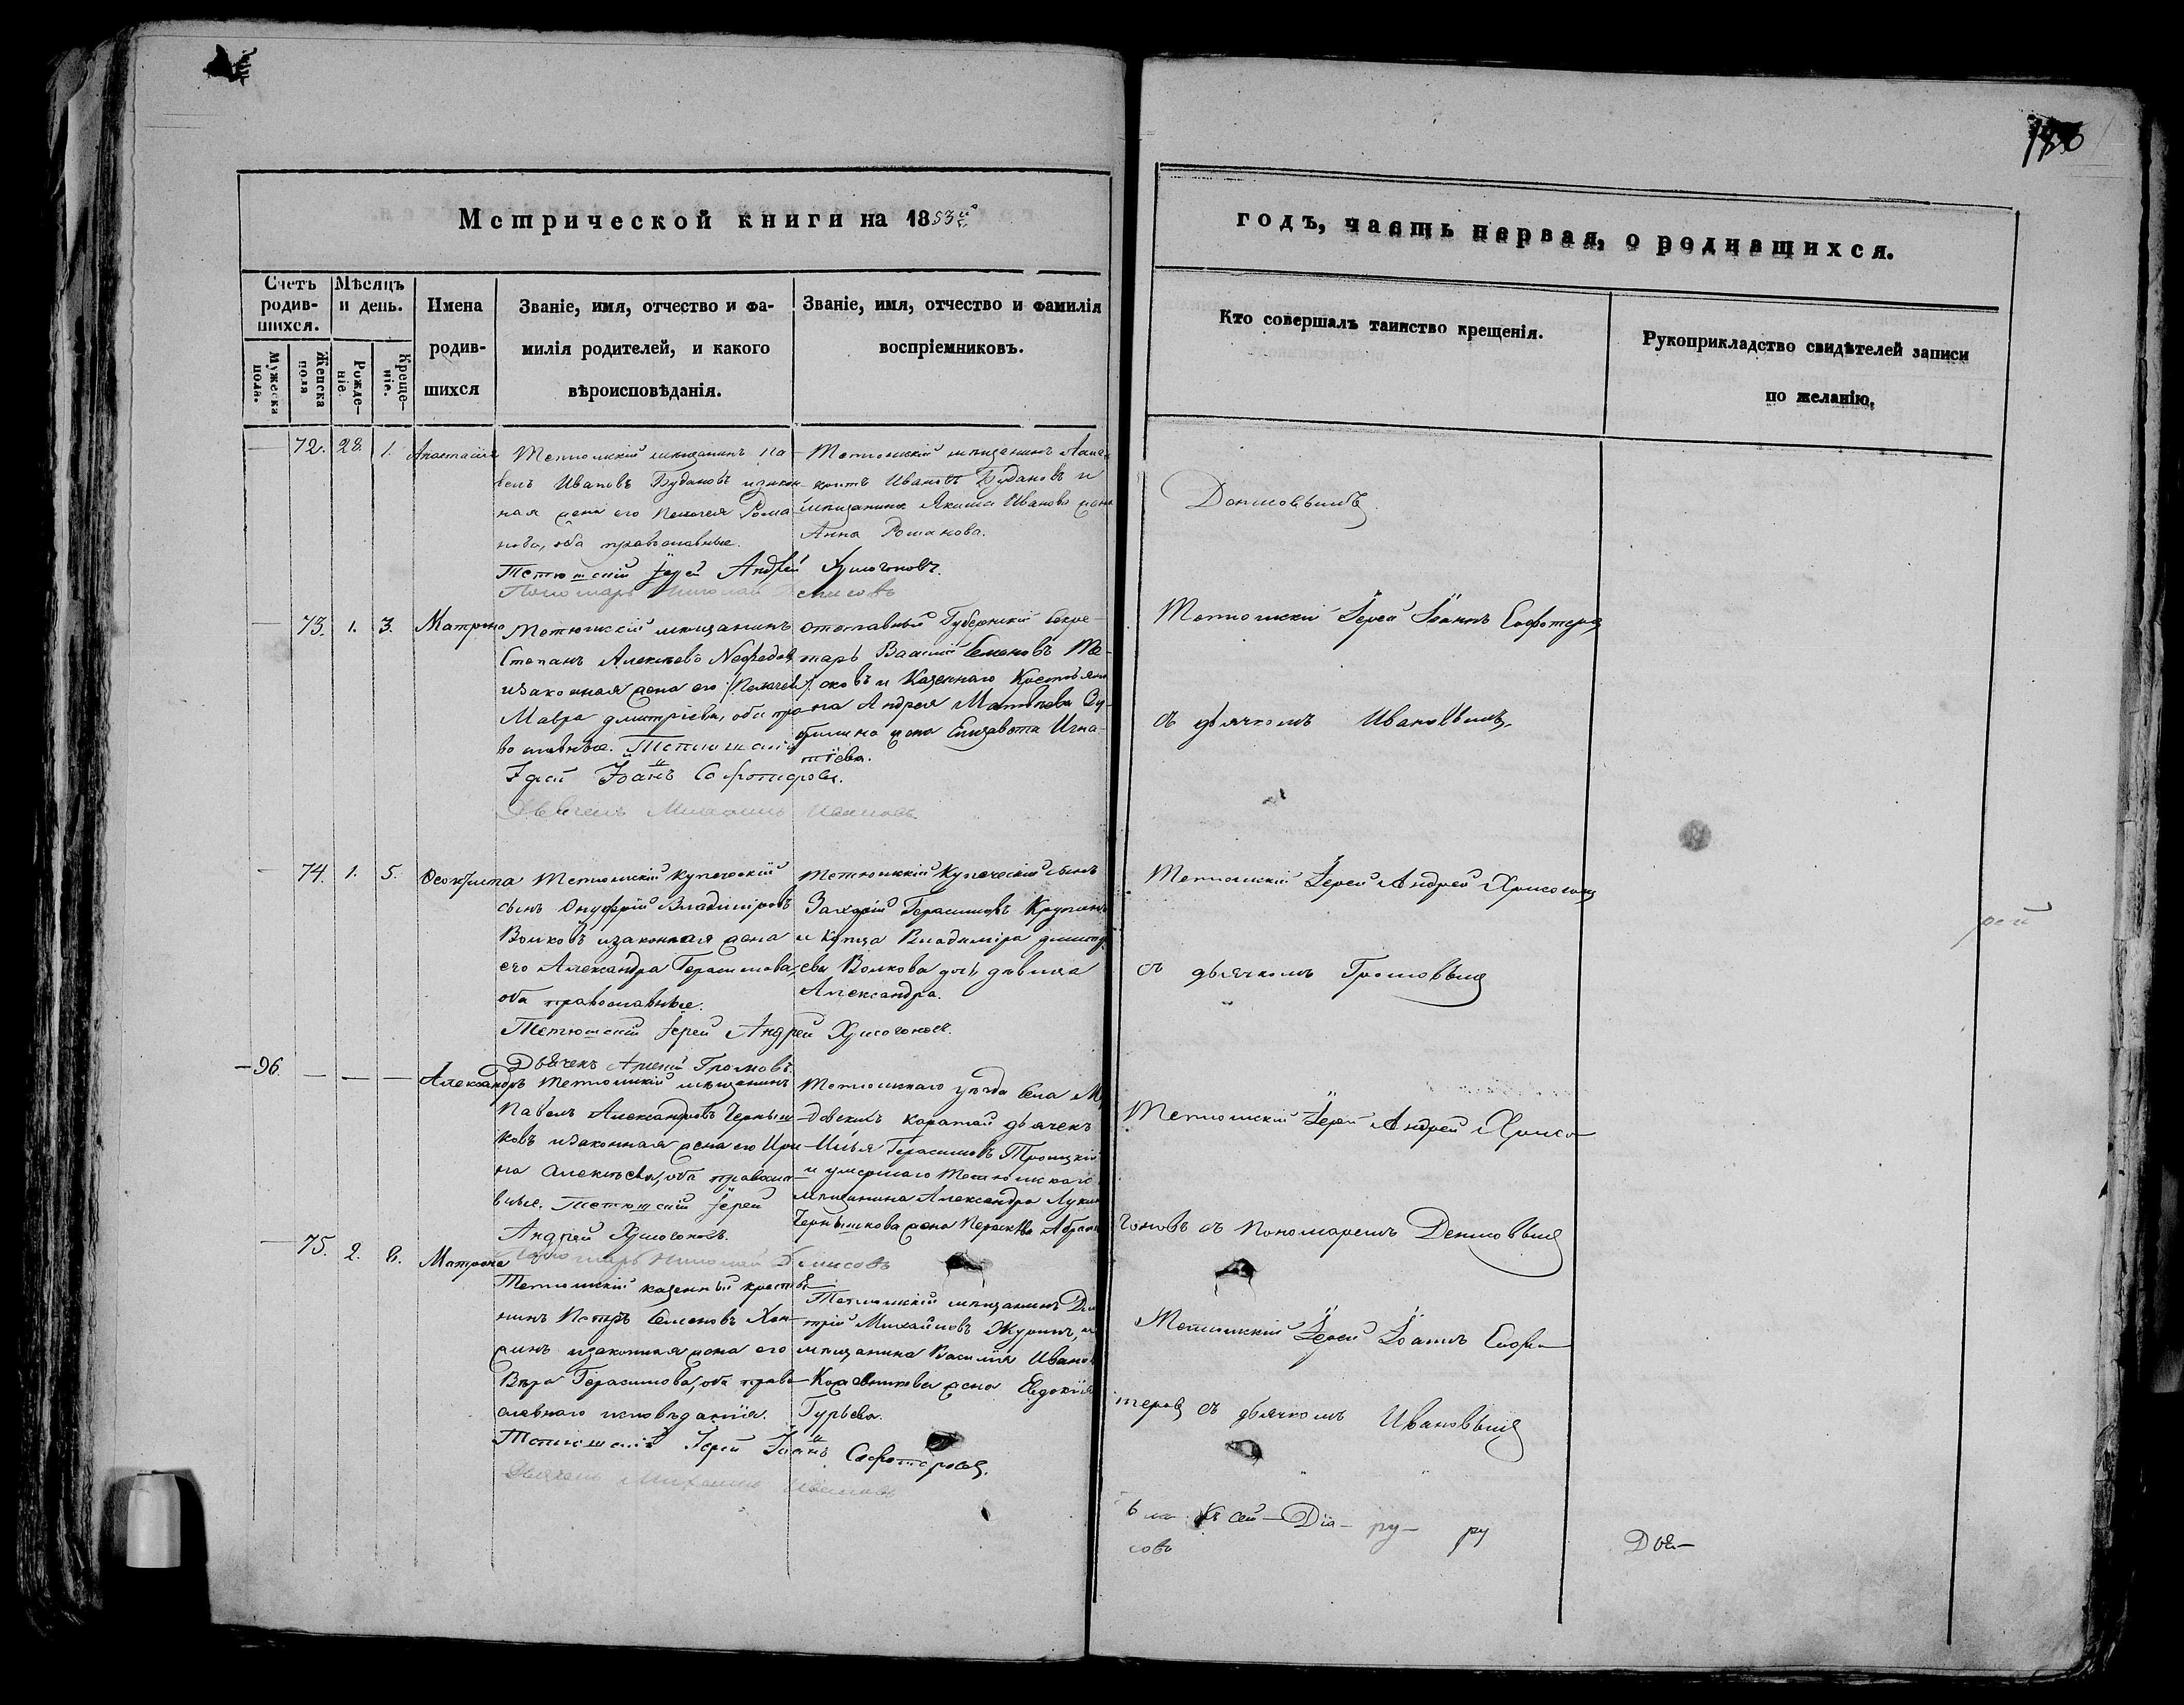 186
Метрической книги на 1853й
годъ, часть первая, о родившихся.
Счетъ родив-шихся.
Мужеска пола.
Женска пола
Мѣсяцъ и день.
Рожде-ніе.
Креще-ніе.
Имена родив-шихся
Званіе, имя, отчество и фа-
милія родителей, и какого
вѣроисповѣданія.
Званіе, имя, отчество и фамилія
воспріемниковъ.
Кто совершалъ таинство крещенія.
Рукоприкладство свидѣтелей записи
по желанію,
72. 28. 1. Анастасія
Тетюшскій мѣщанинъ Па-
велъ Ивановъ Будановъ и закон-
ная жена его Пелагея Рома-
нова, оба православные.
Тетюшскій Іерей Андрей Хрисогоновъ.
Пономарь Николай Денисовъ
Тетюшскій мѣщанинъ
Ивановъ Будановъ и
мѣщанина Якима Иванова жена
Анна Романова.
Денисовымъ.
73. 1. 3. Матрона
Тетюшскій мѣщанинъ
Степанъ Алексѣевъ
и законная жена его
Мавра Дмитріева, оба пра-
вославные. Тетюшскій
Іерей Іоаннъ Софотеровъ.
Дьячекъ Михаилъ Ивановъ
отставный Губернскій Секре-
тарь Василій Семеновъ
и Казеннаго Крестьяни-
на Андрея Матвѣева
жена Елизавета Игна-
тіева.
Тетюшскій Іерей Іоаннъ Софотеровъ
съ дьячкомъ Ивановымъ.
74. 1. 5. Ѳеоктиста
Тетюшскій Купеческій
сынъ Онуфрій Владиміровъ
Волковъ и законная жена
его Александра Герасимова,
оба православные.
Тетюшскій Іерей Андрей Хрисогоновъ.
Дьячекъ Арсеній Громовъ.
Тетюшскій Купеческій сынъ
Захарій Герасимовъ
и Купца Владиміра Дмитрі-
ева Волкова дочь девица
Александра.
Тетюшскій Іерей Андрей Хрисогоновъ
съ дьячкомъ Громовымъ
рей
96. — — — Александръ
Тетюшскій мѣщанинъ
Павелъ Александровъ Черныш-
ковъ и законная жена его Ири-
на Алексѣева, оба православ-
вные. Тетюшскій Іерей
Андрей Хрисогоновъ.
Пономарь Николай Денисовъ
Тетюшскаго уѣзда Села
Каратай дьячекъ
Илья Герасимовъ Троицкій
и умершаго Тетюшскаго
мѣщанина Александра Лукина
Чернышкова жена
Тетюшскій Іерей Андрей Хрисо-
гоновъ съ Пономаремъ Денисовымъ
75. 2. 6. Матрона
Тетюшскій казенный крестья-
нинъ Петръ Семеновъ
и законная жена его
Вѣра Герасимова, оба право-
славнаго исповѣданія.
Тетюшскій Іерей Іоаннъ Софотеровъ.
Дьячекъ Михаилъ Ивановъ
Тетюшскій мѣщанинъ Дми-
трій Михайловъ Журинъ, и
мѣщанина Василія Иванова
жена Евдокія
Гурьева.
Тетюшскій Іерей Іоаннъ Софо-
теровъ съ дьячкомъ Ивановымъ
сей — Діа — ру — ру
совъ
Дья—